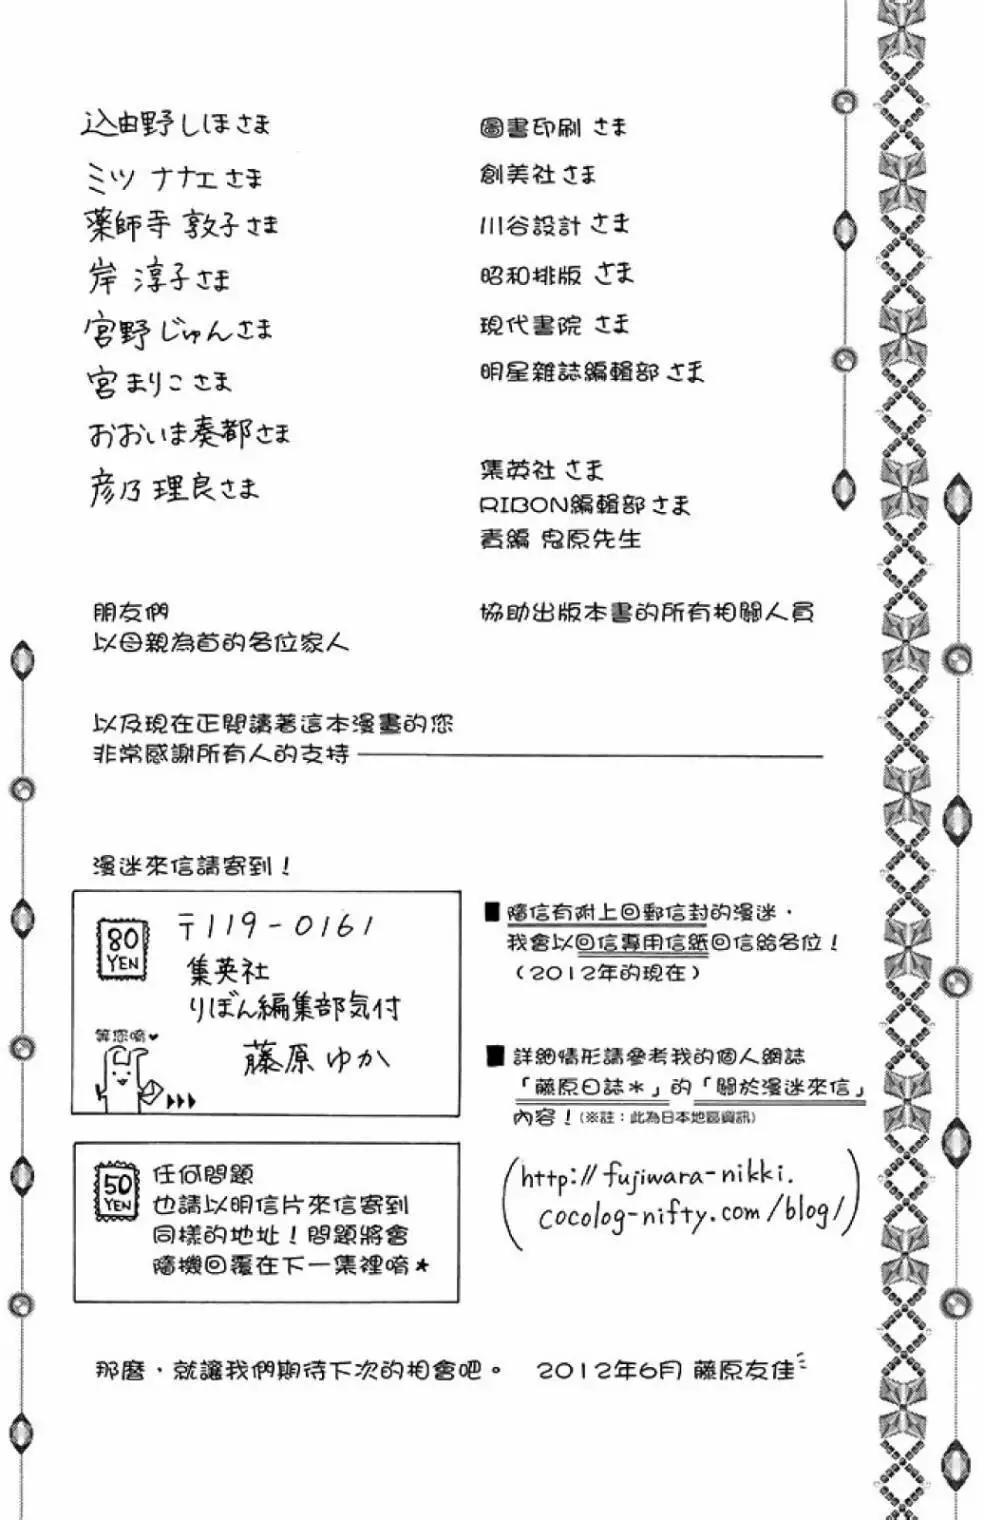 込由野しほさま
ミツ ナナエさま
薬師寺 敦子さま
岸 淳子さま
宮野じゅんさま
宮まりこさま
おおいま奏都さま
彦乃理良さま
圖書印刷 さま
創美社さま
川谷設計 さま
昭和排版 さま
現代書院 さま
明星雜誌編輯部 さま
集英社 さま
RIBON編輯部 さま
責編 鬼原先生
朋友們
以母親為首的各位家人
協助出版本書的所有相關人員
以及現在正閱讀著這本漫畫的您
非常感謝所有人的支持
漫迷來信請寄到！
80
YEN
〒119-0161
集英社
りぼん編集部気付
藤原ゆか
等您唷♥
■隨信有附上回郵信封的漫迷，
我會以回信專用信紙回信給各位！
（2012年的現在）
■詳細情形請參考我的個人網誌
「藤原日誌＊」的「關於漫迷來信」
內容！(※註：此為日本地區資訊)
(http://fujiwara-nikki.
cocolog-nifty.com/blog/)
50
YEN
任何問題
也請以明信片來信寄到
同樣的地址！問題將會
隨機回覆在下一集裡唷★
那麼，就讓我們期待下次的相會吧。 2012年6月 藤原友佳